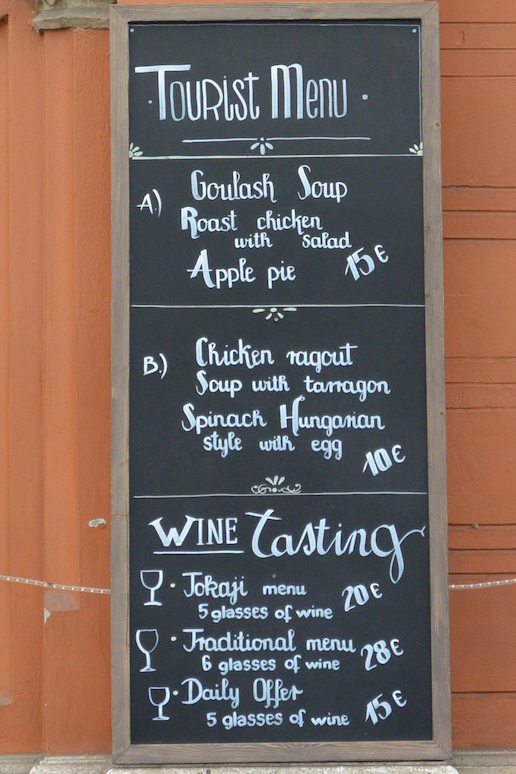 · Tourist Menu ·
A.) Goulash Soup
Roast chicken
with salad
Apple pie 15€
B.) Chicken ragout
Soup with tarragon
Spinach Hungarian
style with egg
10€
WINE tasting
· Tokaji menu 20€
5 glasses of wine
· Traditional menu 28€
6 glasses of wine
· Daily Offer
5 glasses of wine 15€